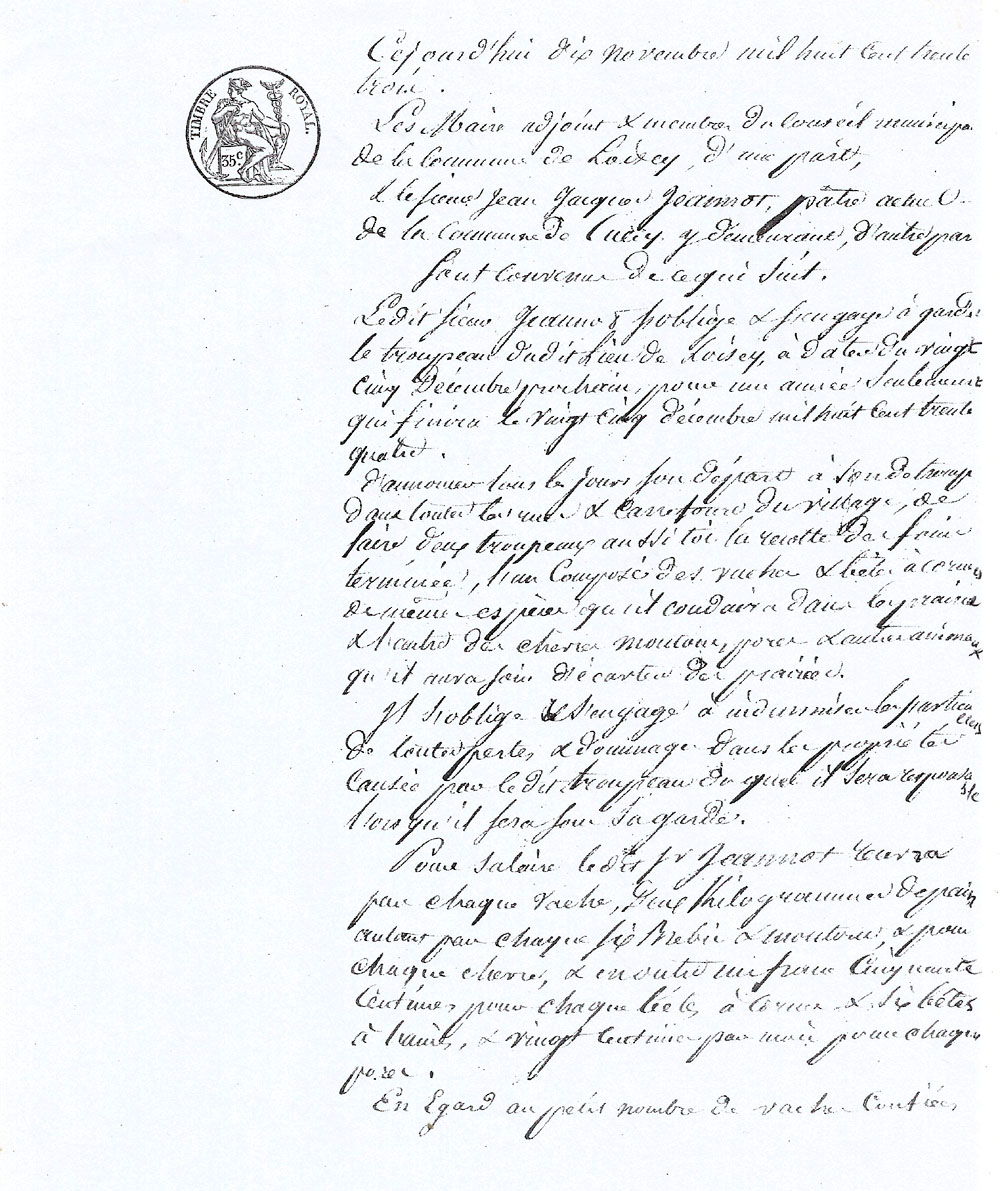 TIMBRE ROYAL.
35c
Cejourd'hui dix novembre mil huit Cent trente
trois.
Les Maire adjoint & membres du Conseil municipa
de la Commune de Loisey, d'une part,
& le sieur Jean Jacques Jeannot, pâtre actuel
de la Commune de Culey y demeurant, d'autre par
Sont Convenus de ce qui Suit.
Ledit sieur Jeannot s'oblige & s'engage à garder
le troupeau dudit Lieu de Loisey, à dater du vingt
cinq Décembre prochain, pour une année Seulement
qui finira le vingt cinq décembre mil huit Cent trente
quatre.
d'annoncer tous les jours son départ à Son de tromp
dans toutes les rues & Carrefours du village, de
faire deux troupeaux aussitôt la récolte des foins
terminée, l'un Composé des vaches & bêtes à cornes
de même espèce qu'il conduira dans les prairies
& l'autre des chèvres moutons, porcs & autres animaux
qu'il aura soin d'écarter des prairies.
Il s'oblige & S'engage à indemniser les particuliers
de toutes pertes & dommages dans les propriétés
Causés par ledit troupeau duquel il Sera responsable
lorsqu'il sera sous Sa garde.
Pour Salaire ledit sr Jeannot recevra
par chaque vache, deux Kilogrammes de pain
autant par chaque six Brebis & moutons, & pour
chaque chèvre, & en outre un franc Cinquante
Centimes pour chaque bêtes à Cornes & Six bêtes
à laine, & vingt Centimes par mois pour chaque
porc.
En Egard au petit nombre de vaches Confiées